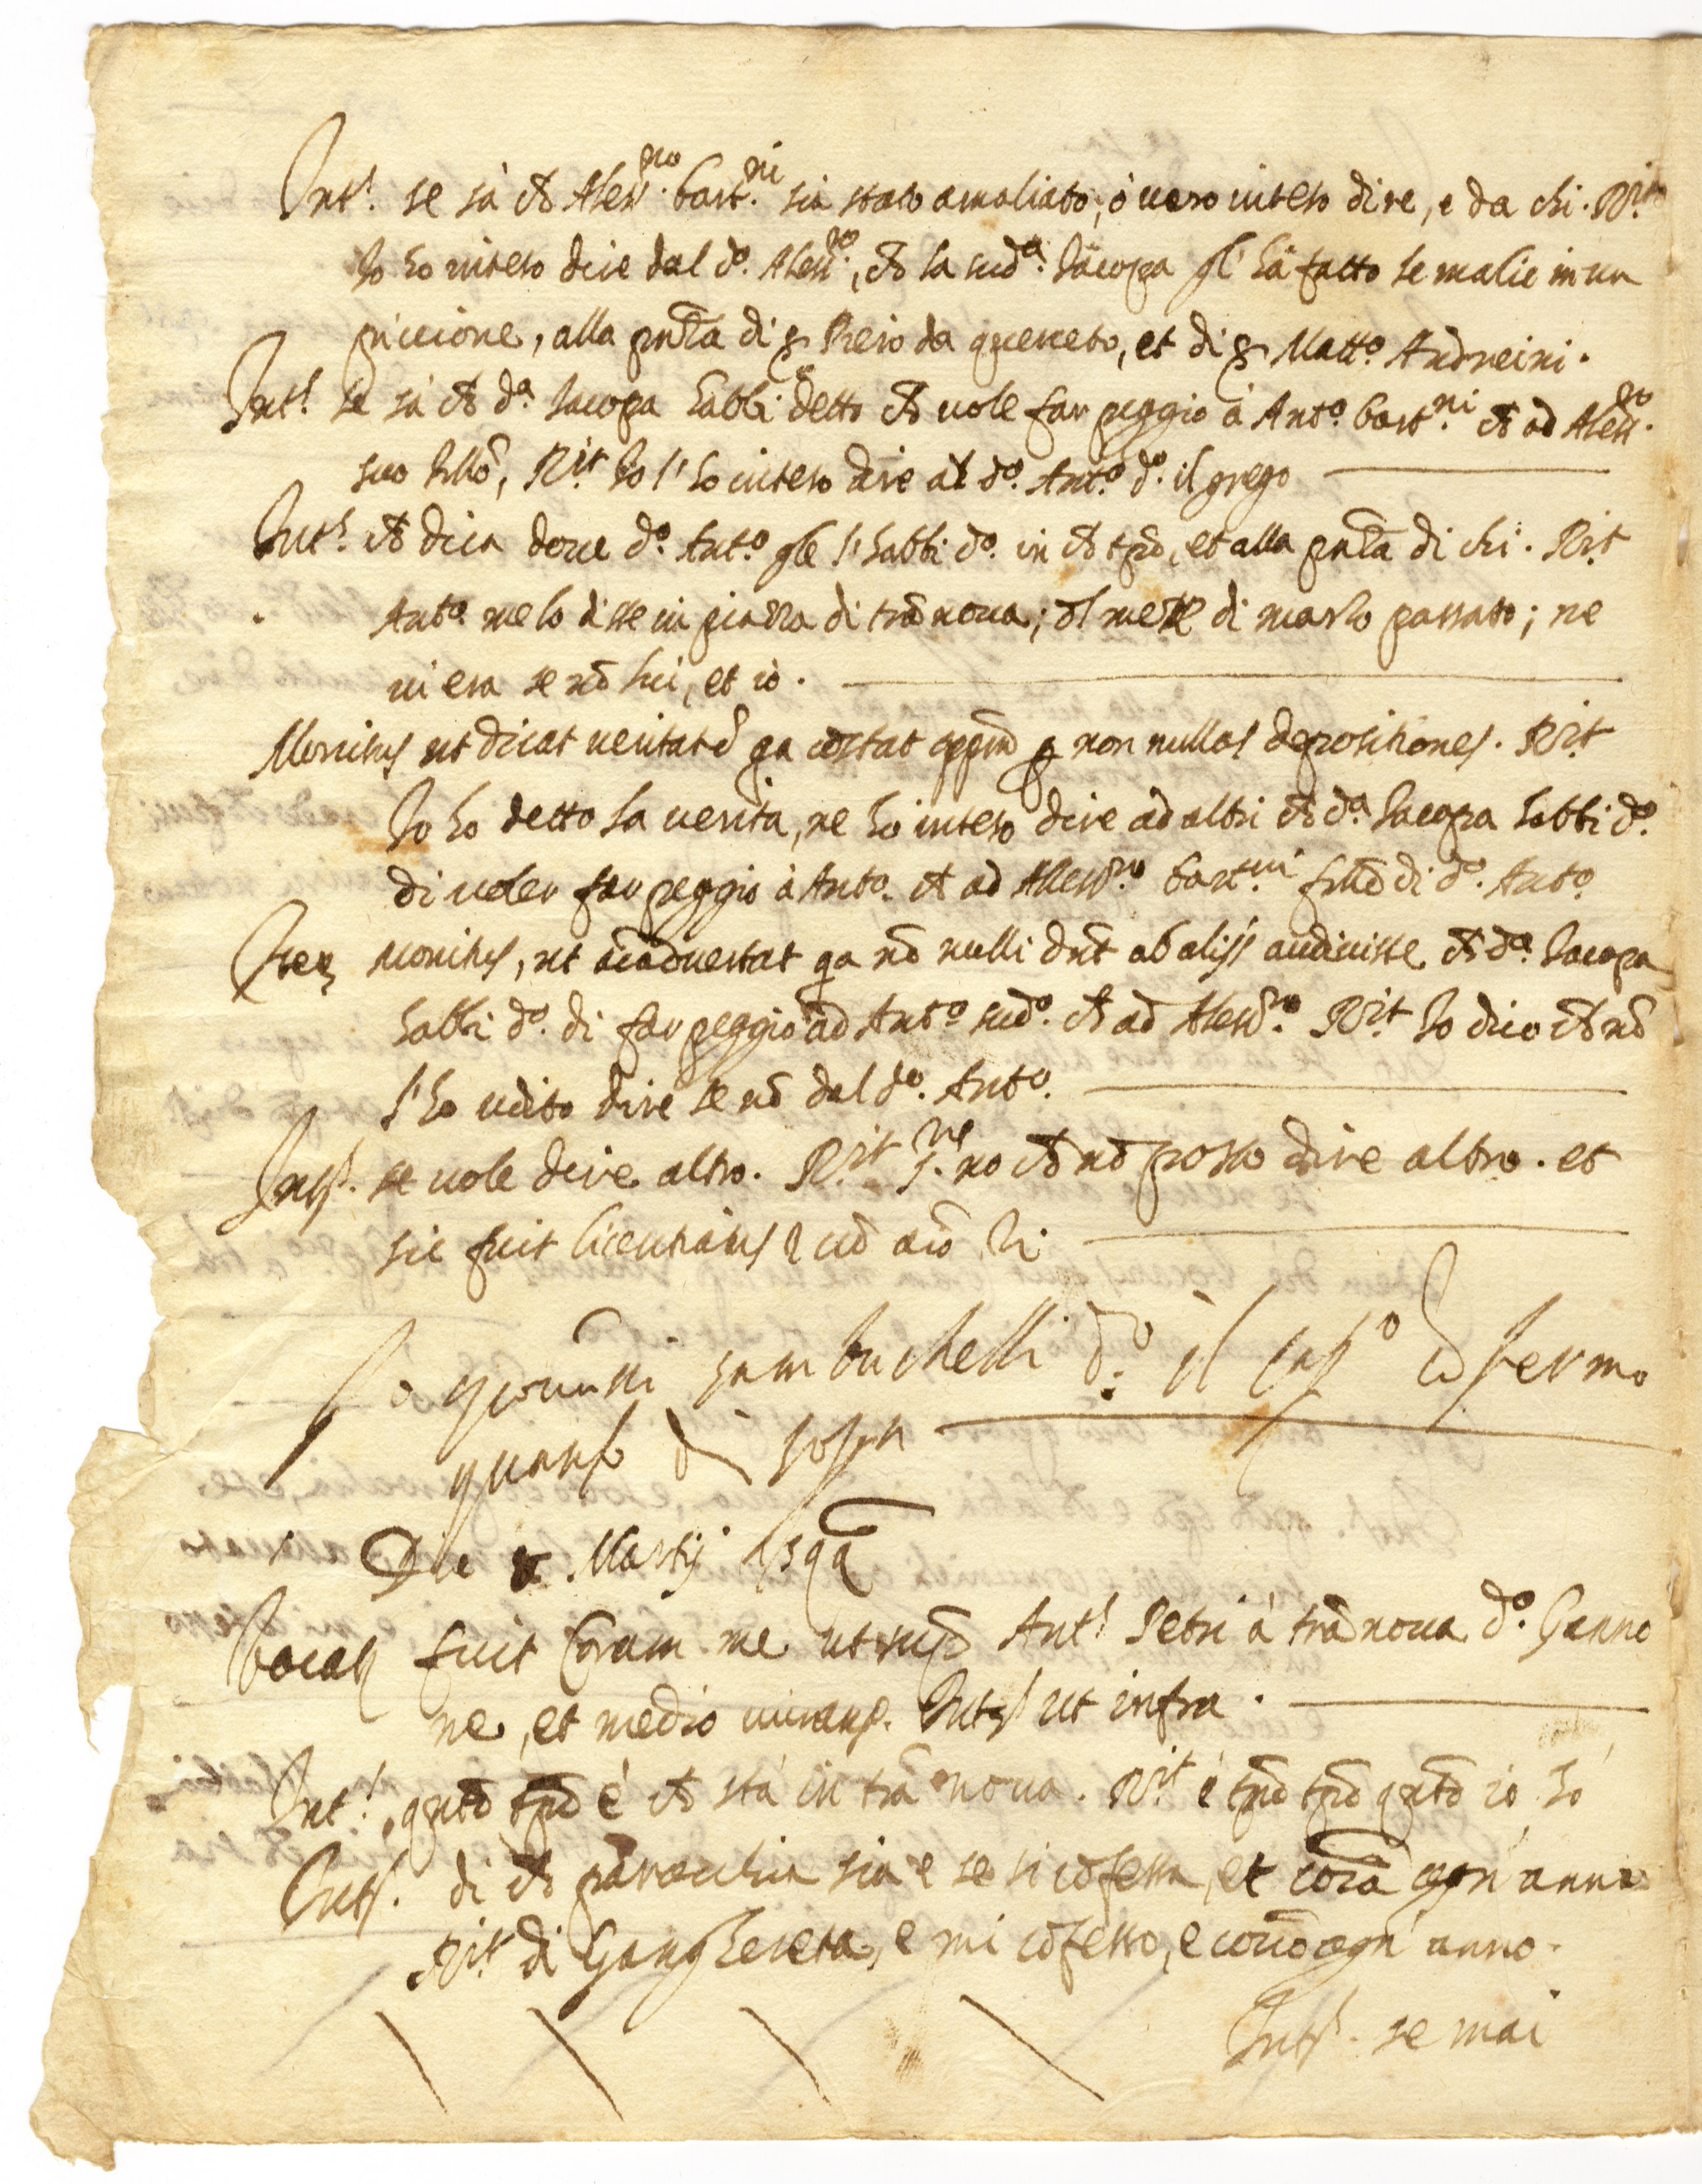 Int.s se sà ch Aless.ro bart.ni sia stato amaliato, ò uero inteso dire, e da chi. R.it
Io ho inteso dire dal d.o Aless.ro, ch la sud.a Iacopa gl' hà fatto le malie in un
piccione, alla pñtia di ser Piero da querceto, et di ser Matt.o Andreini.
Int.s se sà ch d.a Iacopa habbi detto ch uole far peggio à Ant.o bart.ni ch ad Aless.ro
suo R.it Io l'ho inteso dire al d.o Ant.o d.o il grego
Int.s ch dica doue d.o Ant.o gle l'habbi d.o in ch tpõ, et alla pñtia di chi. R.it
Ant.o me lo disse in piazza di trã noua; il mese di marzo passato; ne
ui era se nõ lui, et io.
Monitus ut dicat ueritatẽ qa cõstat oppm̃ p non nullas depositiones. R.it
Io ho detto la uerita, ne ho inteso dire ad altri ch d.a Iacopa habbi d.o
di uoler far peggio à Ant.o ch ad Aless.ro bart.ni di d.o Ant.o
Iter monitus, ut aĩaduertat qa nõ nulli dñt ab alijs audiuisse ch d.a Iacopa
habbi d.o di far peggio ad Ant.o sud.o ch ad Aless.ro R.it Io dico ch nõ
l'ho udito dire se nõ dal d.o Ant.o
Int.s se uole dire altro. R.it S.re no ch nõ posso dire altro. et
sic fuit licentiatus
Io giouanni sambuchelli d.o il cap.o cõfermo
quanto di sopra
Die Martij 1594
Vocat.s fuit coram me ut supr Ant.s Petri à trã noua d.o Ganno
ne, et medio iuram.to Int.s ut infra.
Int.s, qntõ tpõ è ch stà in trã noua. R.it è tñto tpõ qntõ io hò
Int.s di ch parochia sia e se si cõfessa, et coĩca ogn' anno
R.it di Ganghereta, e mi cõfesso, e coĩco ogn' anno.
Int.s se mai